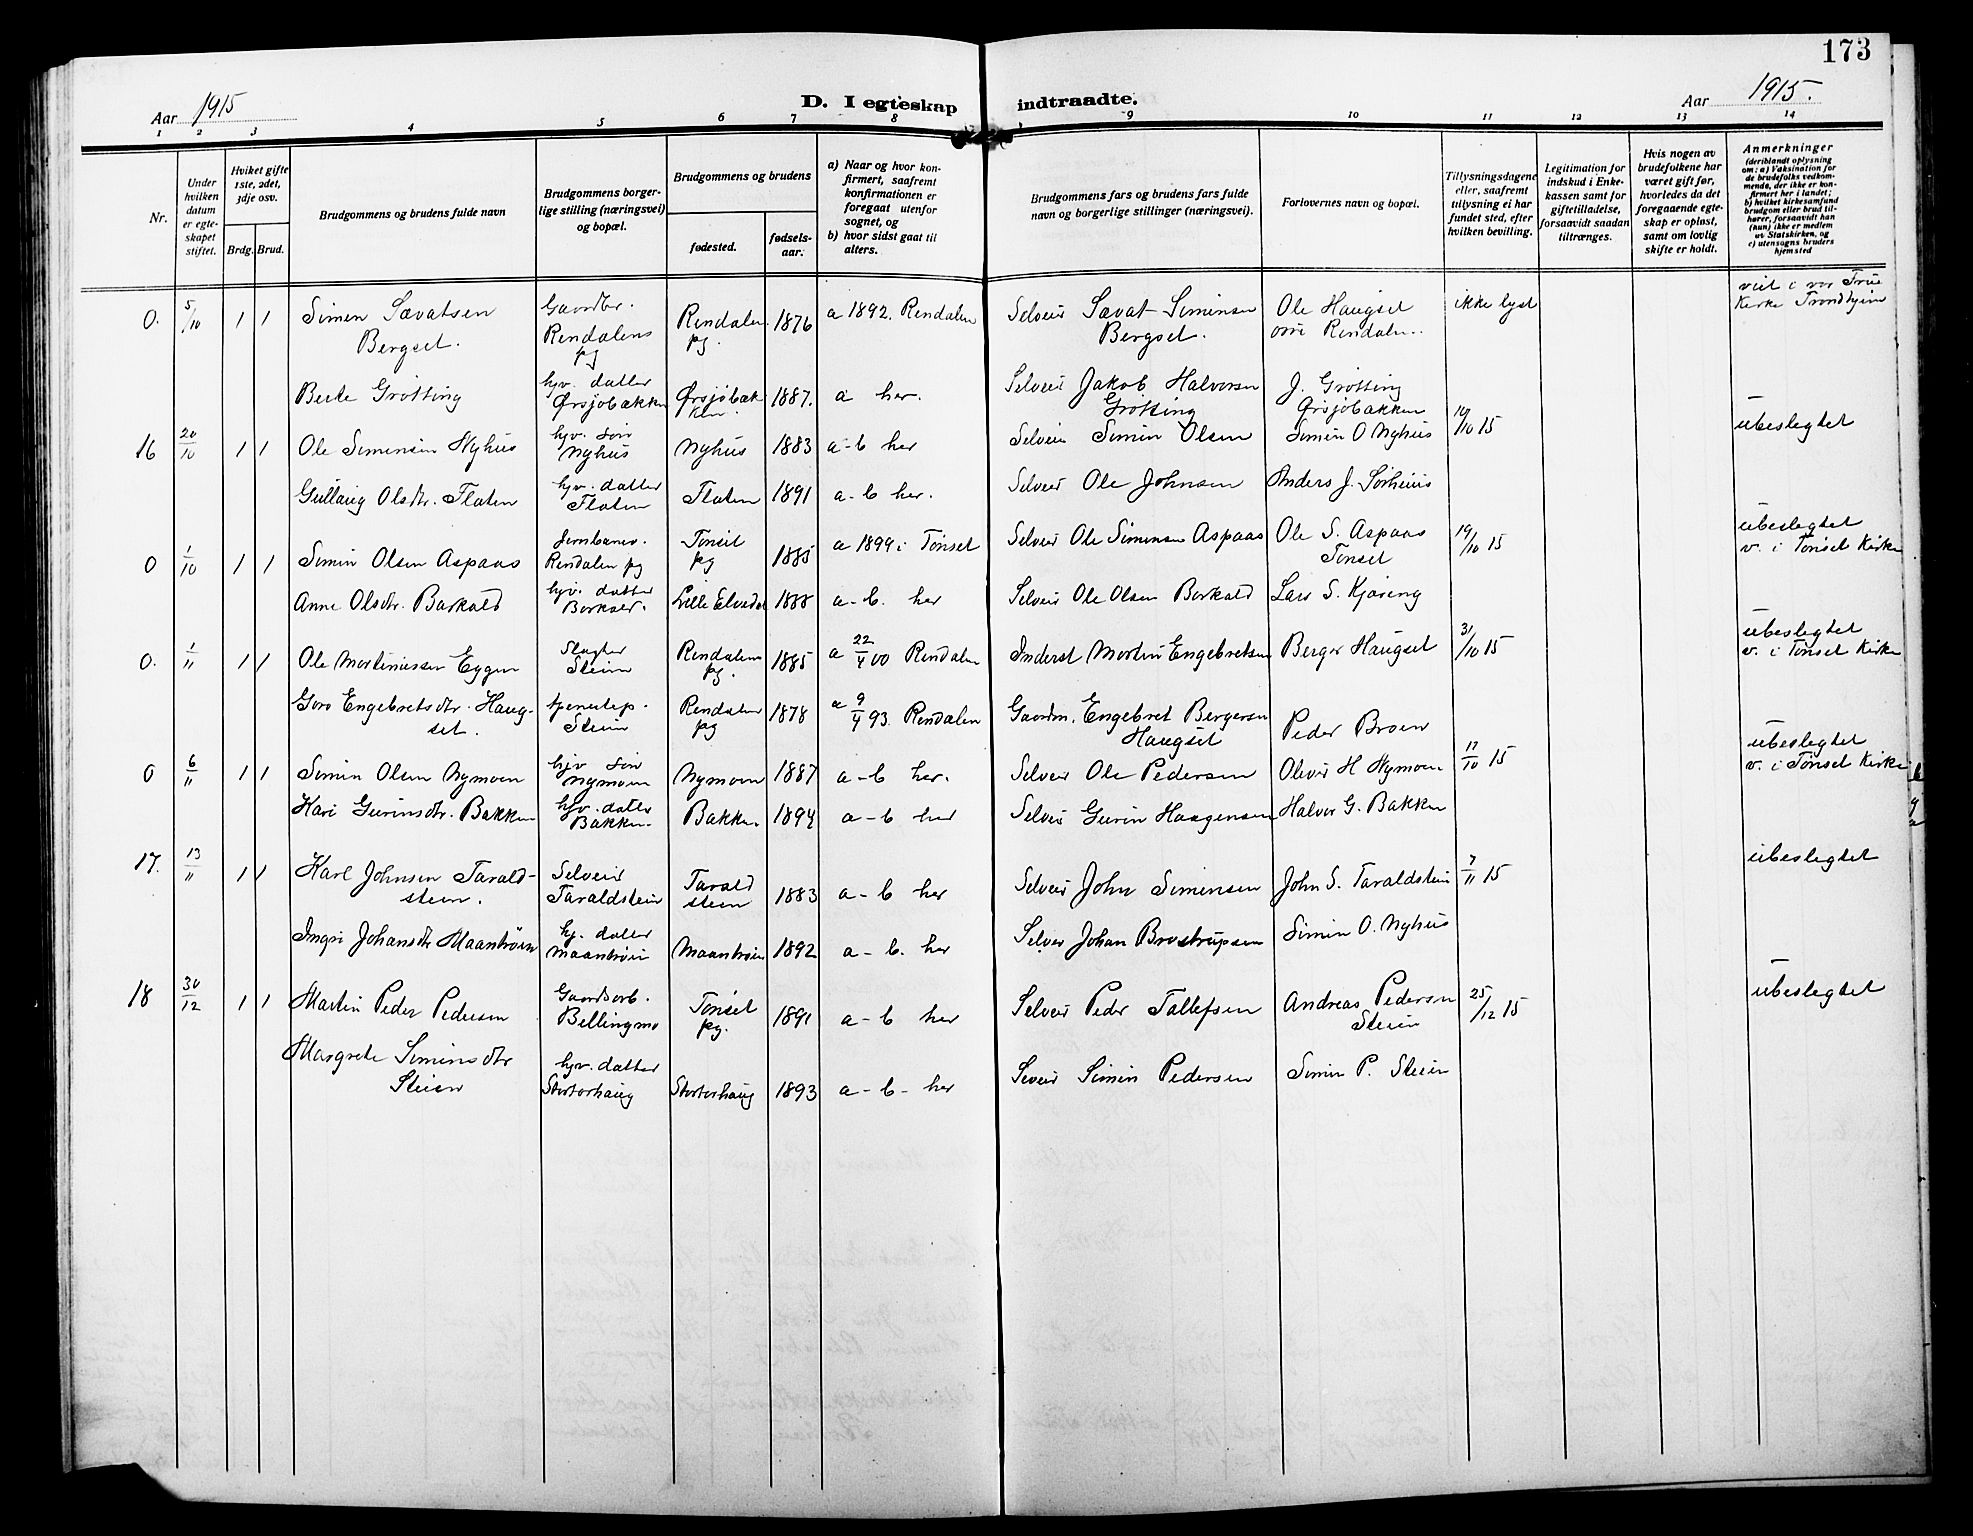 173
Aar 1915
D. I egteskap indtraadte.
Aar 1915.
1 2 3 4 5 6 7 8 9 10 11 12 13 14
Nr.
Under hvilken datum er egteskapet stiftet.
Hvilket gifte 1ste, 2det, 3dje osv.
Brdg. Brud.
Brudgommens og brudens fulde navn
Brudgommens borgerlige stilling (næringsvei) og bopæl.
Brudgommens og brudens
fødested.
fødselsaar.
a) Naar og hvor konfirmert, saafremt konfirmationen er foregaat utenfor sognet, og
b) hvor sidst gaat til alters.
Brudgommens fars og brudens fars fulde navn og borgerlige stillinger (næringsvei).
Forlovernes navn og bopæl.
Tillysningsdagene eller, saafremt tillysning ei har fundet sted, efter hvilken bevilling.
Legitimation for indskud i Enkekassen samt for giftetilladelse, forsaavidt saadan tiltrænges.
Hvis nogen av brudefolkene har været gift før, hvorledes da det foregaaende egteskap er opløst, samt om lovlig skifte er holdt.
Anmerkninger
(deriblandt oplysning om: a) Vaksination for de brudefolks vedkommende, der ikke er konfirmert her i landet; b) hvilket kirkesamfund brudgom eller brud tilhører, forsaavidt han (hun) ikke er medlem av Statskirken, og c) utensogns bruders hjemsted
0. 5/10 1 1 Simen Sævatsen Bergset. Gaardbr. Rendalens pg Rendalen pg. 1876 a 1892. Rendalen Selveier Sævat Simensen Bergset. Ole Haugset øvre Rendalen. ikke lyst viet i vor Frue Kirke Trondhjem
Berte Grøtting hjv. datter Ørsjøbækken Ørsjøbækken. 1887. a her. Selveier Jakob Halvorsen Grøtting J. Grøtting Ørsjøbækken
16 20/10 1 1 Ole Simensen Nyhus hjv. søn Nyhus Nyhus 1883 a-b her Selveier Simen Olsen Simen O Nyhus 10/10 15 ubeslegtet
Gullaug Olsdtr. Floten hjv. datter Floten Floten 1891 a-b her. Selveier Ole Johnsen Anders J. Sørhuus
0 1/10 1 1 Simen Olsen Aspaas Jernbanev. Rendalen pg Tønset pg 1885 a 1899 i Tønset Selveier Ole Simensen Aspaas Ole S. Aspaas Tønset 19/10 15 ubeslegtet v. i Tønset Kirke
Anne Olsdtr. Barkald hjv. datter Barkald. Lille Elvedal 1888 a-b. her Selveier Ole Olsen Barkald Lars S. Kjøreng
0. 1/11 1 1 Ole Martinussen Eggen Slagter Steien Rendalen pg. 1885 a 22/4 00 Rendalen Inderst Morten Engebretsen Berger Haugset 31/10 15 ubeslegtet v. i Tønset Kirke
Goro Engebretsdtr. Haugset. tjenestep. Steien Rendalen pg 1878 a 9/4 93. Rendalen Gaardm. Engebret Bergersen Haugset Peder Broen
0 6/11 1 1 Simen Olsen Nymoen hjv søn Nymoen Nymoen 1887 a-b her. Selveier Ole Pedersen Oliver H Nymoen 17/10 15 ubeslegtet v. i Tønset Kirke
Kari Gurinsdtr. Bakken hjv. datter Bakken. Bakken. 1894 a-b her Selveier Gurin Haagensen Halvor G. Bakken
17. 13/11 1 1 Karl Johnsen Taraldsteen. Selveier Taraldsteien Taraldsteen 1883 a-b her Selveier John Simensen John S. Taraldsteien 7/11 15 ubeslegtet
Ingri Johansdtr Maanbrøen hj. datter Maanbrøen Maanbrøen 1892 a-b. her Selveier Johan Brostrupsen Simen O. Nyhus
18 30/12 1 1 Martin Peder Pedersen Gaardsarb. Bellingmo Tønset pg. 1891 a-b her Selveier Peder Tallefsen Andreas Pedersen Steien 25/12 15 ubeslegtet
Margrete Simensdtr Steien hjv. datter Stortorhaug Stortorhaug 1893 a-b-her Seveier Simen Pedersen Simen P. Steien